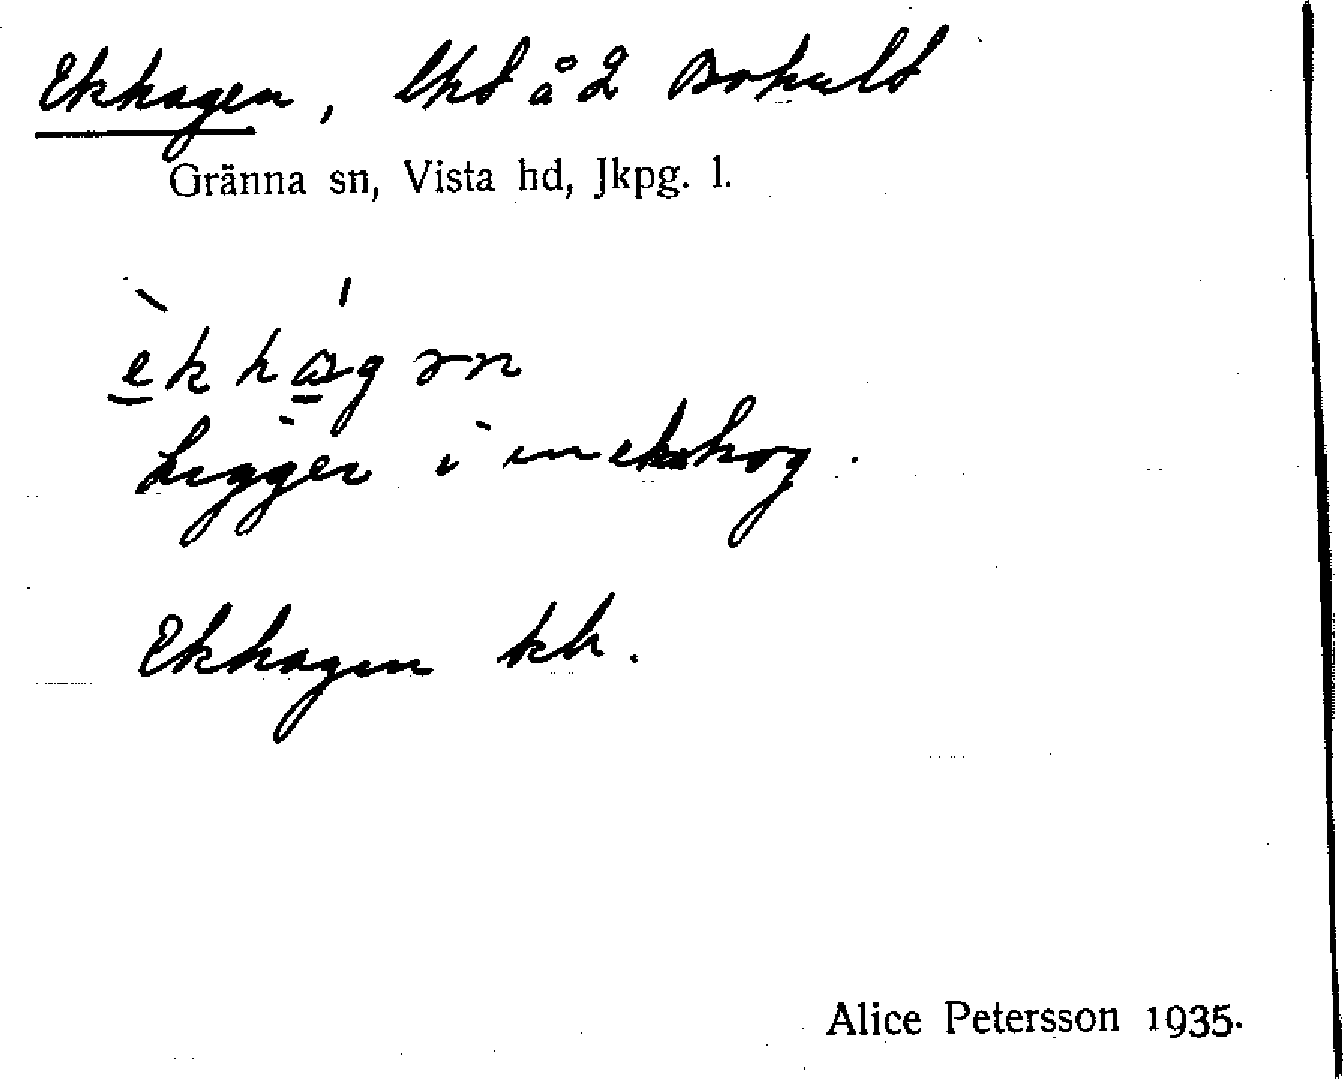 Ekhagen, lhd å 2 Bokult
Gränna sn, Vista hd, Jkpg. l.
èkhágən
Ligger i en ekskog.
Ekhagen kb.
Alice Petersson 1935.